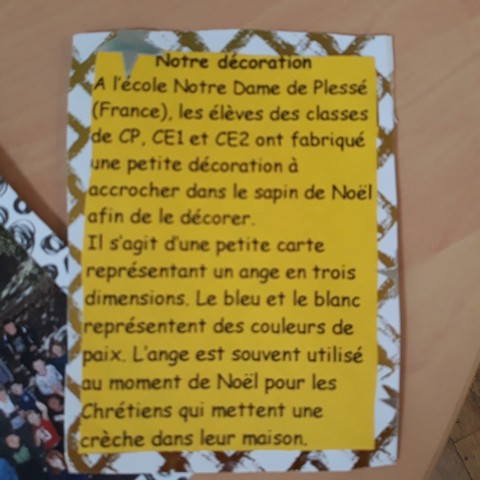 Notre décoration
A l'école Notre Dame de Plessé
(France), les élèves des classes
de CP, CE1 et CE2 ont fabriqué
une petite décoration à
accrocher dans le sapin de Noël
afin de le décorer.
Il s'agit d'une petite carte
représentant un ange en trois
dimensions. Le bleu et le blanc
représentent des couleurs de
paix. L'ange est souvent utilisé
au moment de Noël pour les
Chrétiens qui mettent une
crèche dans leur maison.